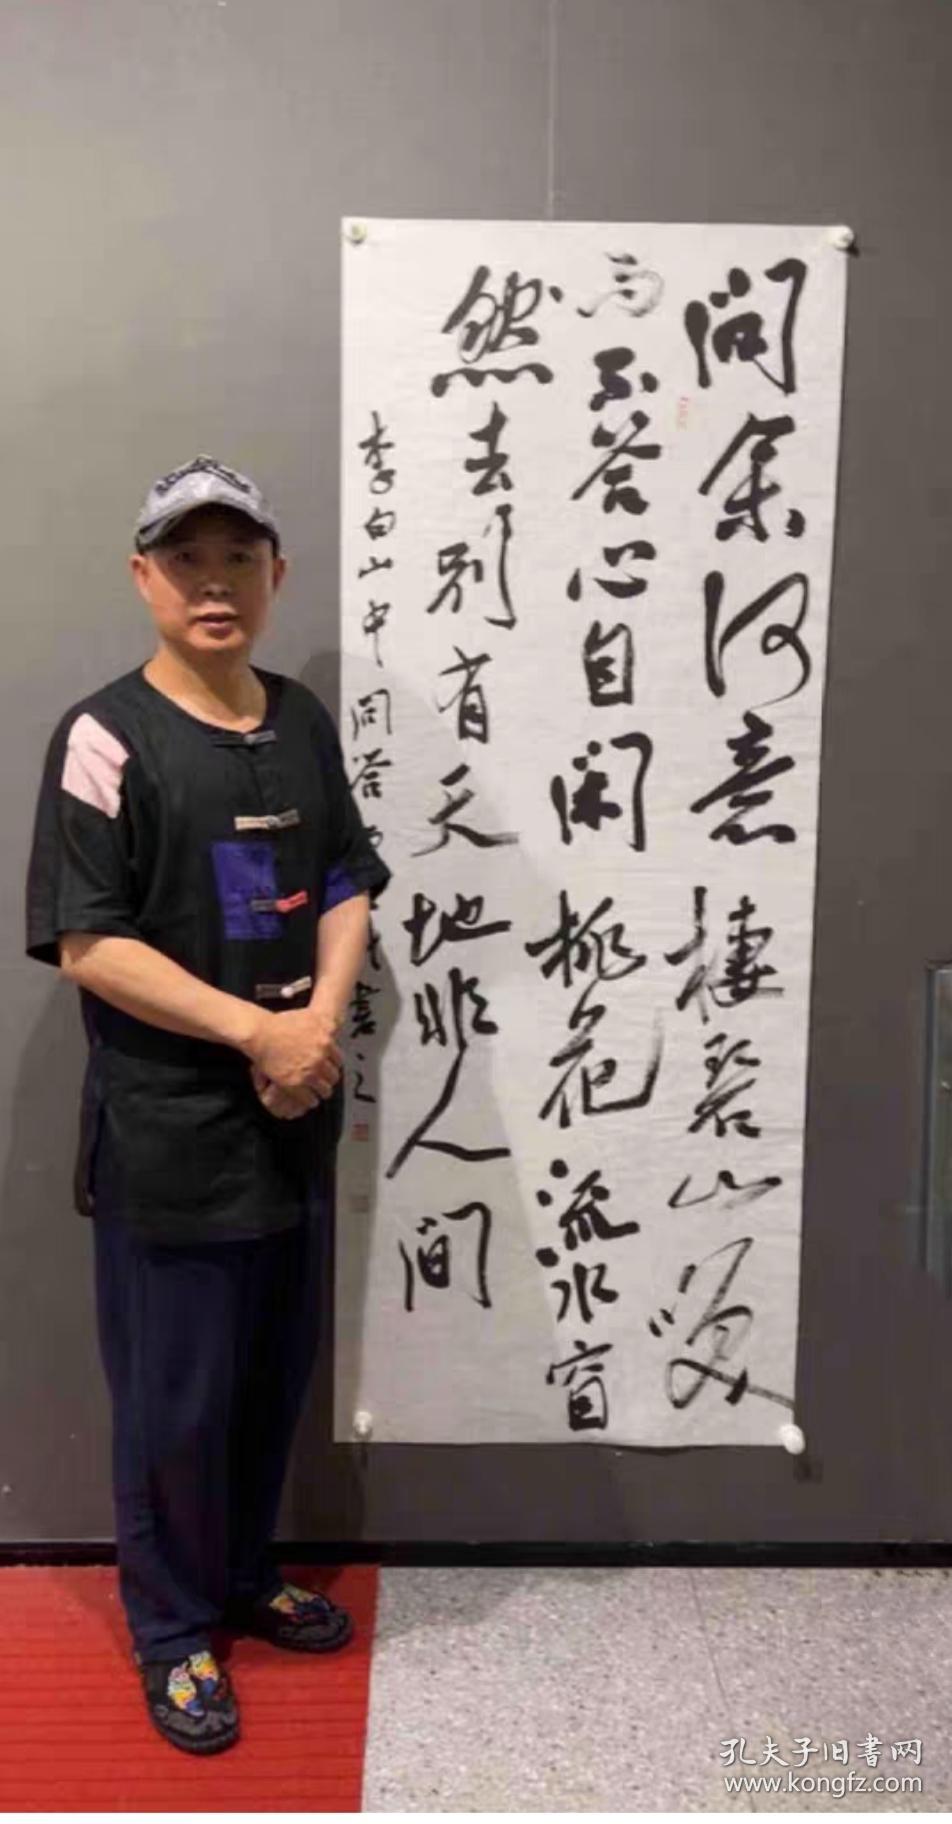 问余何意棲碧山笑
而不答心自闲桃花流水窅
然去别有天地非人间
李白山中问答
书之
孔夫子旧書网
www.kongfz.com